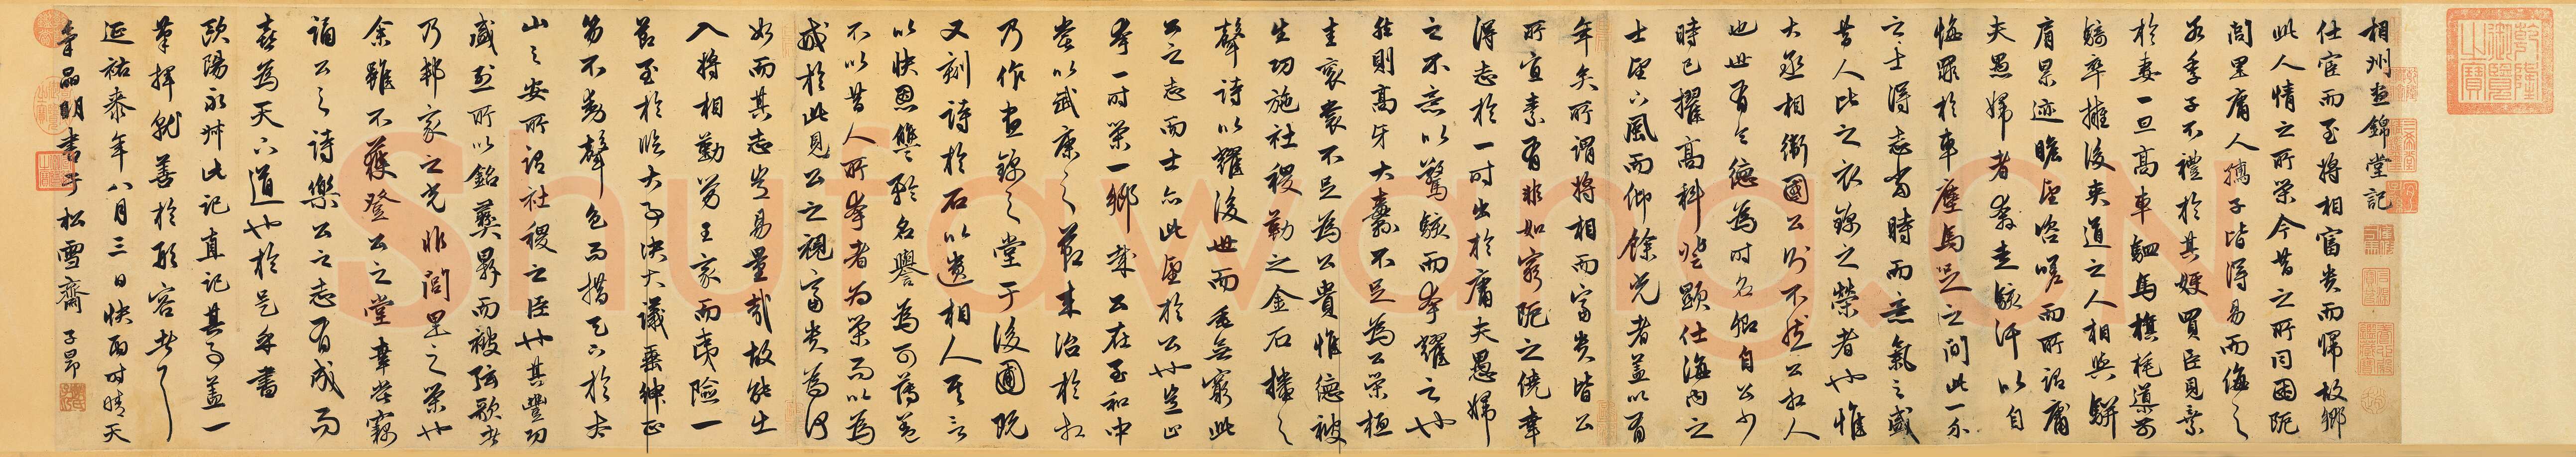 乾隆御覽之寶
相州晝錦堂記
仕宦而至將相富貴而歸故鄉
此人情之所榮今昔之所同困阨
閭里庸人孺子皆得易而侮之
若季子不禮於其嫂買臣見棄
於妻一旦高車駟馬旗旄導前
騎卒擁後夾道之人相與駢
肩累迹瞻望咨嗟而所謂庸
夫愚婦者奔走駭汗以自
悔罪於車塵馬足之間此一介
之士得志當時而意氣之盛
昔人比之衣錦之榮者也惟
大丞相衛國公則不然公相人
也世有令德為時名卿自公少
時已擢高科登顯仕海內之
士望下風而仰餘光者蓋以有
年矣所謂將相而富貴皆公
所宜素有非如窮阨之僥幸
得志於一時出於庸夫愚婦
之不意以驚駭而夸耀之也
然則高牙大纛不足為公榮桓
圭袞裳不足為公貴惟德被
生功施社稷勒之金石播之
聲詩以耀後世而垂無窮此
公之志而士亦此望於公也豈止
夸一時榮一鄉哉公在至和中
嘗以武康之節來治於相
乃作晝錦之堂于後圃既
又刻詩於石以遺相人其言
以快恩讎矜名譽為可薄蓋
不以昔人所夸者為榮而以為
戒於此見公之視富貴為何
如而其志豈易量哉故能出
入將相勤勞王家而夷險一
節至於臨大事決大議垂紳正
笏不動聲色而措天下於泰
山之安所謂社稷之臣也其豐功
盛烈所以銘彝鼎而被弦歌者
乃邦家之光非閭里之榮也
余雖不獲登公之堂幸嘗竊
誦公之詩樂公之志有成而
喜為天下道也於是乎書
歐陽永叔此記直記其事蓋一
筆揮就善於形容者
延祐泰年八月三日快雨時晴天
氣品明書于松雪齋 子昂
Shufawang.cn